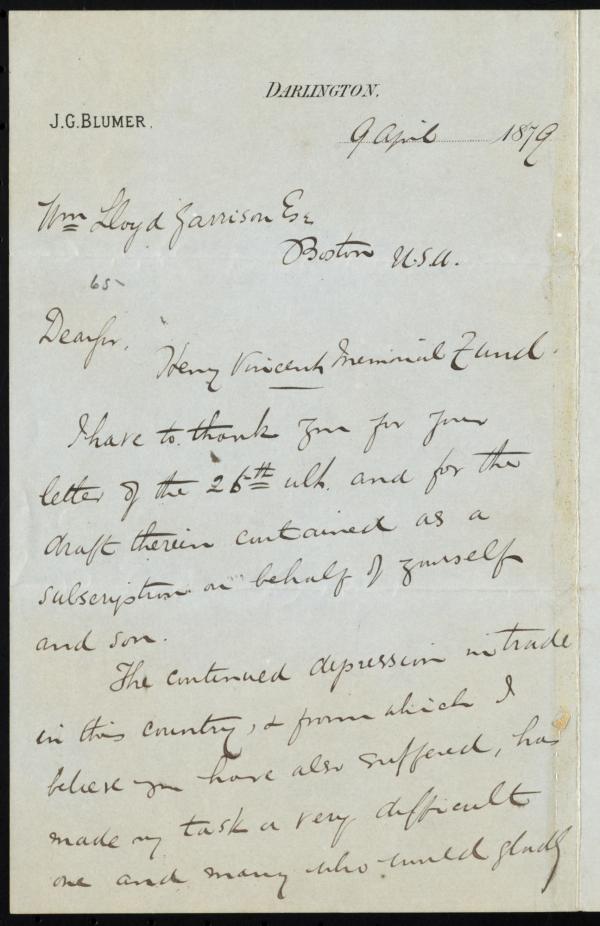 DARLINGTON.
J.G.BLUMER.
9 April 1879
Wm Lloyd Garrison Esq
Boston U.S.A.
65
Dear Sir,
Henry Vincent Memorial Fund.
I have to thank you for your
letter of the 26th ult. and for the
draft therein contained as a
subscription on behalf of yourself
and son.
The continued depression in trade
in this country, & from which I
believe you have also suffered, has
made my task a very difficult
one and many who would gladly